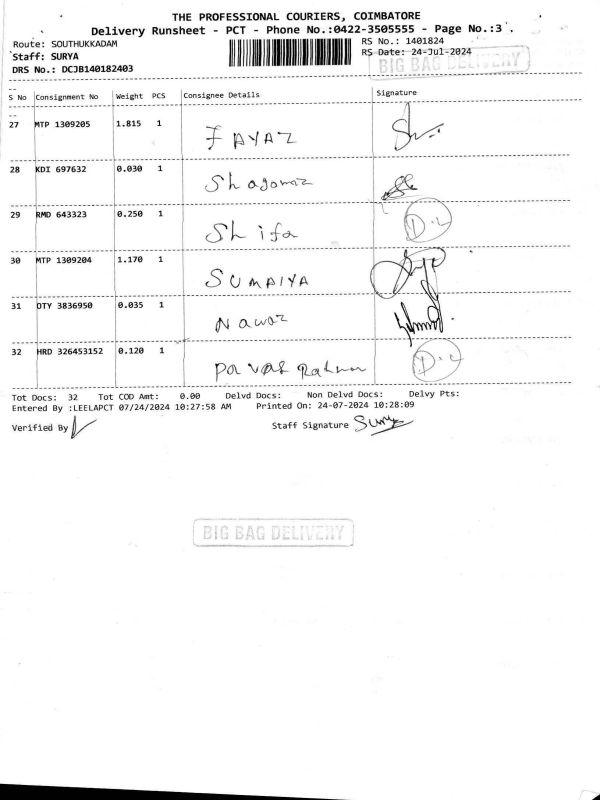 THE PROFESSIONAL COURIERS, COIMBATORE
Delivery Runsheet - PCT - Phone No.:0422-3505555 - Page No.:3
Route: SOUTHUKKADAM RS No.: 1401824
Staff: SURYA RS Date: 24-Jul-2024
BIG BAG DELIVERY
DRS No.: DCJB140182403
S No Consignment No Weight PCS Consignee Details Signature
27 MTP 1309205 1.815 1 FAYAZ
28 KDI 697632 0.030 1
29 RMD 643323 0.250 1 Shifa D.L
30 MTP 1309204 1.170 1 SUMAIYA
31 OTY 3836950 0.035 1 Nawaz
32 HRD 326453152 0.120 1 Rahman D.L
Tot Docs: 32 Tot COD Amt: 0.00 Delvd Docs: Non Delvd Docs: Delvy Pts:
Entered By :LEELAPCT 07/24/2024 10:27:58 AM Printed On: 24-07-2024 10:28:09
Verified By Staff Signature Surya
BIG BAG DELIVERY